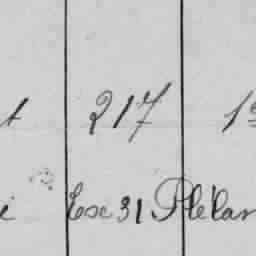 t 217 1e
é Esc 31 Plélan